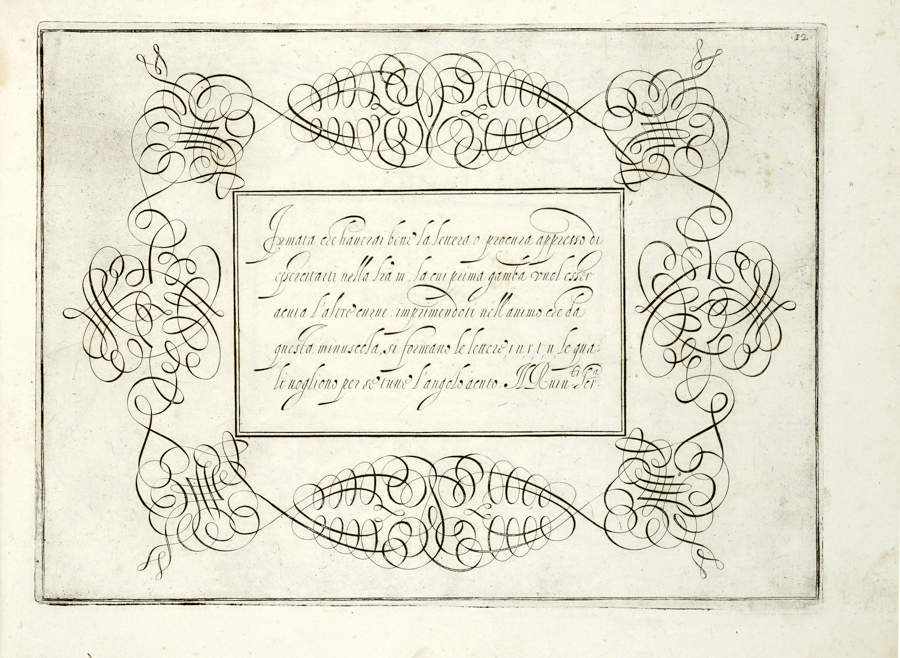 .12.
Formata che hauerai bene la lettera o procura appresso di
essercitarti nella lra m, la cui prima gamba vuol esser
acuta l'altre curue: imprimendoti nell'animo che da
questa minuscola, si formano le lettere i n r t u le qua-
li uogliono per se tutte l'angolo acuto.